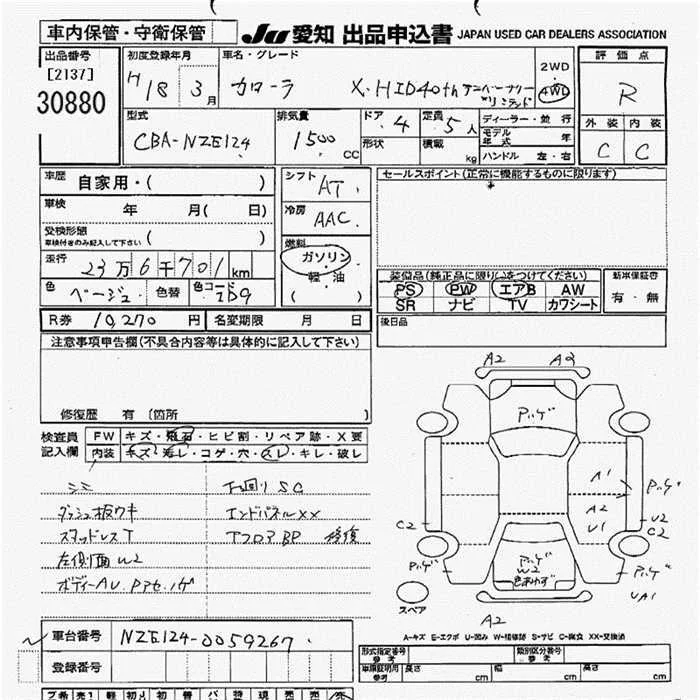 車内保管・守衛保管
JU 愛知 出品申込書 JAPAN USED CAR DEALERS ASSOCIATION
出品番号 初度登録年月 車名・グレード 2WD 4WD 評価点
[2137]
30880
H18 3月 カローラ X・HID40th アニバーサリーリミテッド
R
型式 排気量 ドア 4 定員 5人 ディーラー・並行
外装 内装
CBA-NZE124 1500 CC 形状 積載 kg モデル年式 年
C C
ハンドル 左・右
車歴 自家用・( ) シフト AT
セールスポイント(正常に機能するものに限ります)
車検 年 月( 日) 冷房 AAC
受検形態
車検付きのみ記入して下さい ( )
燃料 ガソリン 軽・油 ( )
走行 23万6千701km
装備品(純正品に限り○をつけてください) 新車保証書
色 ベージュ 色替 色コード 1D9
PS PW エアB AW 有・無
SR ナビ TV カワシート
R券 10,270円 名変期限 月 日
後日品
注意事項申告欄(不具合内容等は具体的に記入して下さい)
A2
修復歴 有 (箇所 )
検査員記入欄 FW キズ・飛石・ヒビ割・リペア跡・X要
内装 キズ・汚レ・コゲ・穴・スレ・キレ・破レ
シミ 下回りSC
ダッシュ板ウキ エンドパネルXX
スタッドレスT TフロアBP 修復
左側面W2
A1
A2
U1
C2
U2
C2
W2
色あせ
UA1
スペア
A2
A-キズ E-エクボ U-凹み W-補修跡 S-サビ C-腐食 XX-交換済
車台番号 NZE124-0059267
登録番号
形式指定番号 参考 類別区分番号 参考
車庫証明用 参考 長さ cm 幅 cm 高さ cm